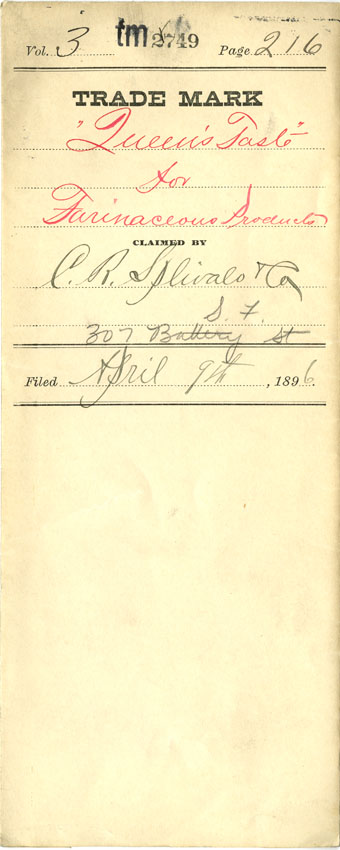 tm 2749
Vol. 3 Page 216
TRADE MARK
"Queen's Taste"
for
Farinaceous Products
CLAIMED BY
C. R. Splivalo & Co
S. F.
307 Battery St
Filed April 9th, 1896.